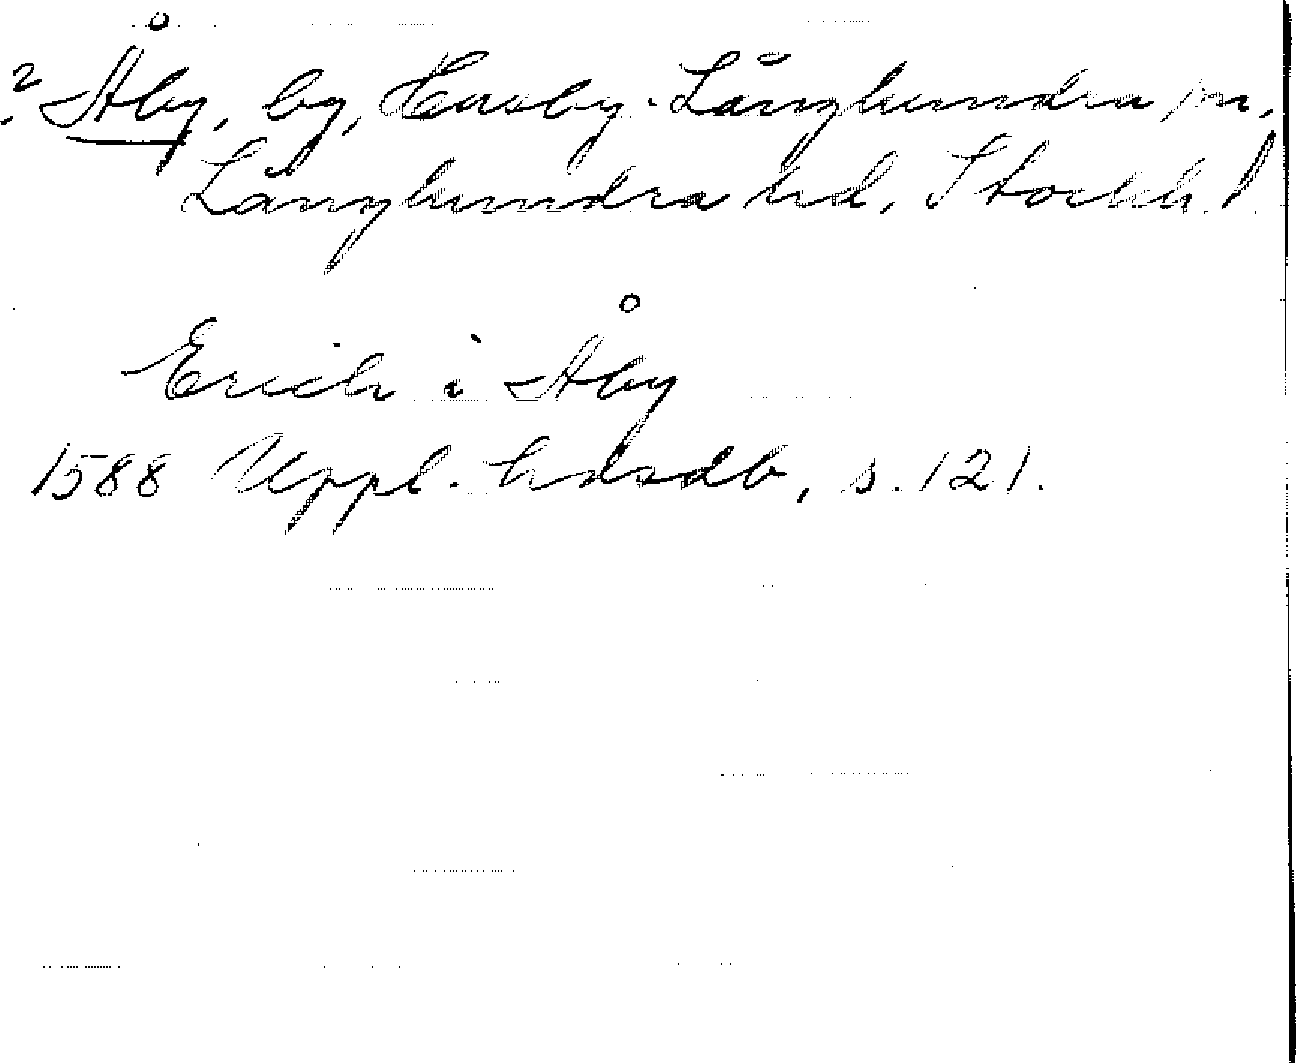 ? Åby, by, Husby-Långhundra sn,
Långhundra hd, Stockh. l.
Erich i Åby
1588 Uppl. hdsdb, s. 121.